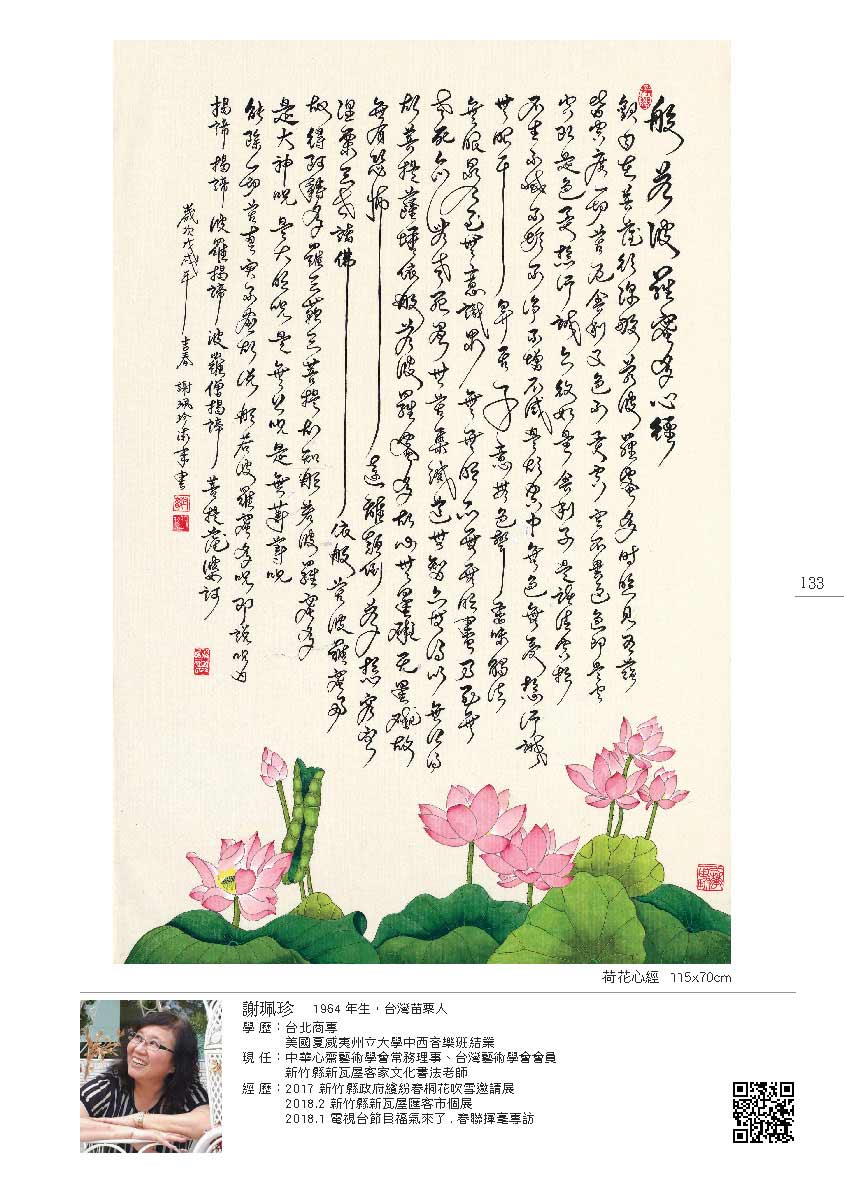 般若波羅蜜多心經
觀自在菩薩行深般若波羅蜜多時照見五蘊
皆空度一切苦厄舍利子色不異空空不異色色即是空
空即是色受想行識亦復如是舍利子是諸法空相
不生不滅不垢不淨不增不減是故空中無色無受想行識
無眼耳鼻舌身意無色聲香味觸法
無眼界乃至無意識界無無明亦無無明盡乃至無
老死亦無老死盡無苦集滅道無智亦無得以無所得
故菩提薩埵依般若波羅蜜多故心無罣礙無罣礙故
無有恐怖遠離顛倒夢想究竟
涅槃三世諸佛依般若波羅蜜多
故得阿耨多羅三藐三菩提故知般若波羅蜜多
是大神咒是大明咒是無上咒是無等等咒
能除一切苦真實不虛故說般若波羅蜜多咒即說咒曰
揭諦揭諦波羅揭諦波羅僧揭諦菩提薩婆訶
歲次戊戌年吉春謝珮珍沐手書
133
荷花心經 115x70cm
謝珮珍 1964 年生，台灣苗栗人
學 歷：台北商專
美國夏威夷州立大學中西音樂班結業
現 任：中華心齋藝術學會常務理事、台灣藝術學會會員
新竹縣新瓦屋客家文化書法老師
經 歷：2017 新竹縣政府繽紛春桐花吹雪邀請展
2018.2 新竹縣新瓦屋匯客市個展
2018.1 電視台節目福氣來了 . 春聯揮毫專訪